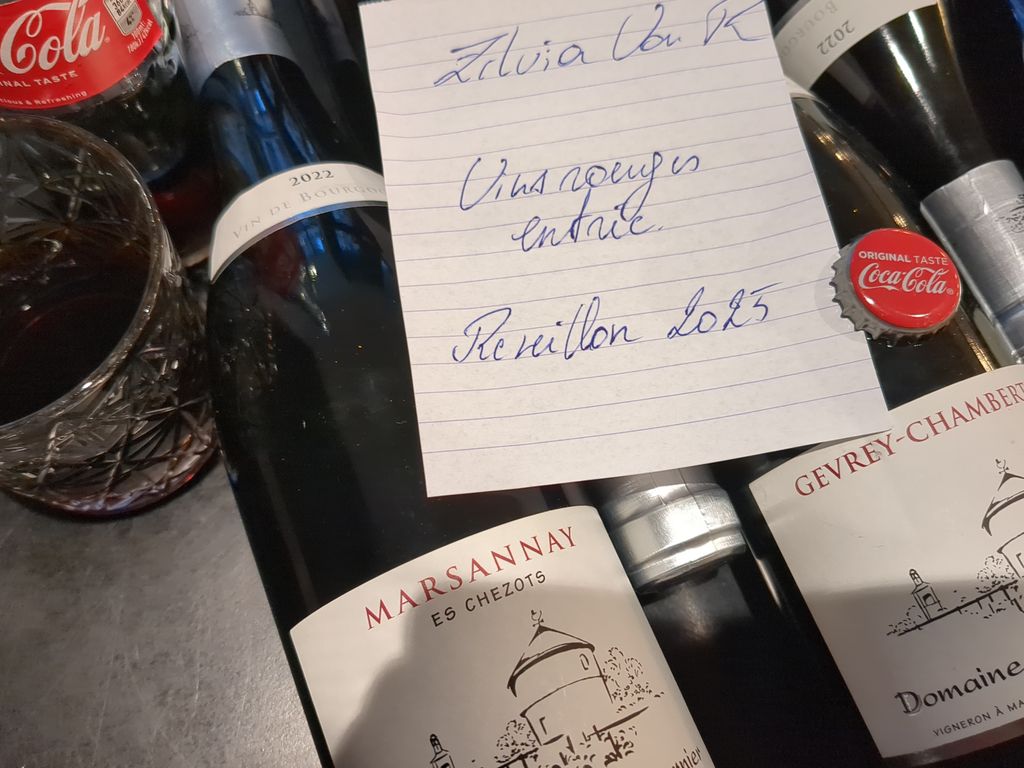 Cola
NAL TASTE
cious & Refreshing
2022
VIN DE BOURGOG
Zilvia Von K
Vins rouges
entrée.
Reveillon 2025
2022
ORIGINAL TASTE
Coca-Cola
MARSANNAY
ES CHEZOTS
GEVREY-CHAMBERT
Domaine
VIGNERON À MA